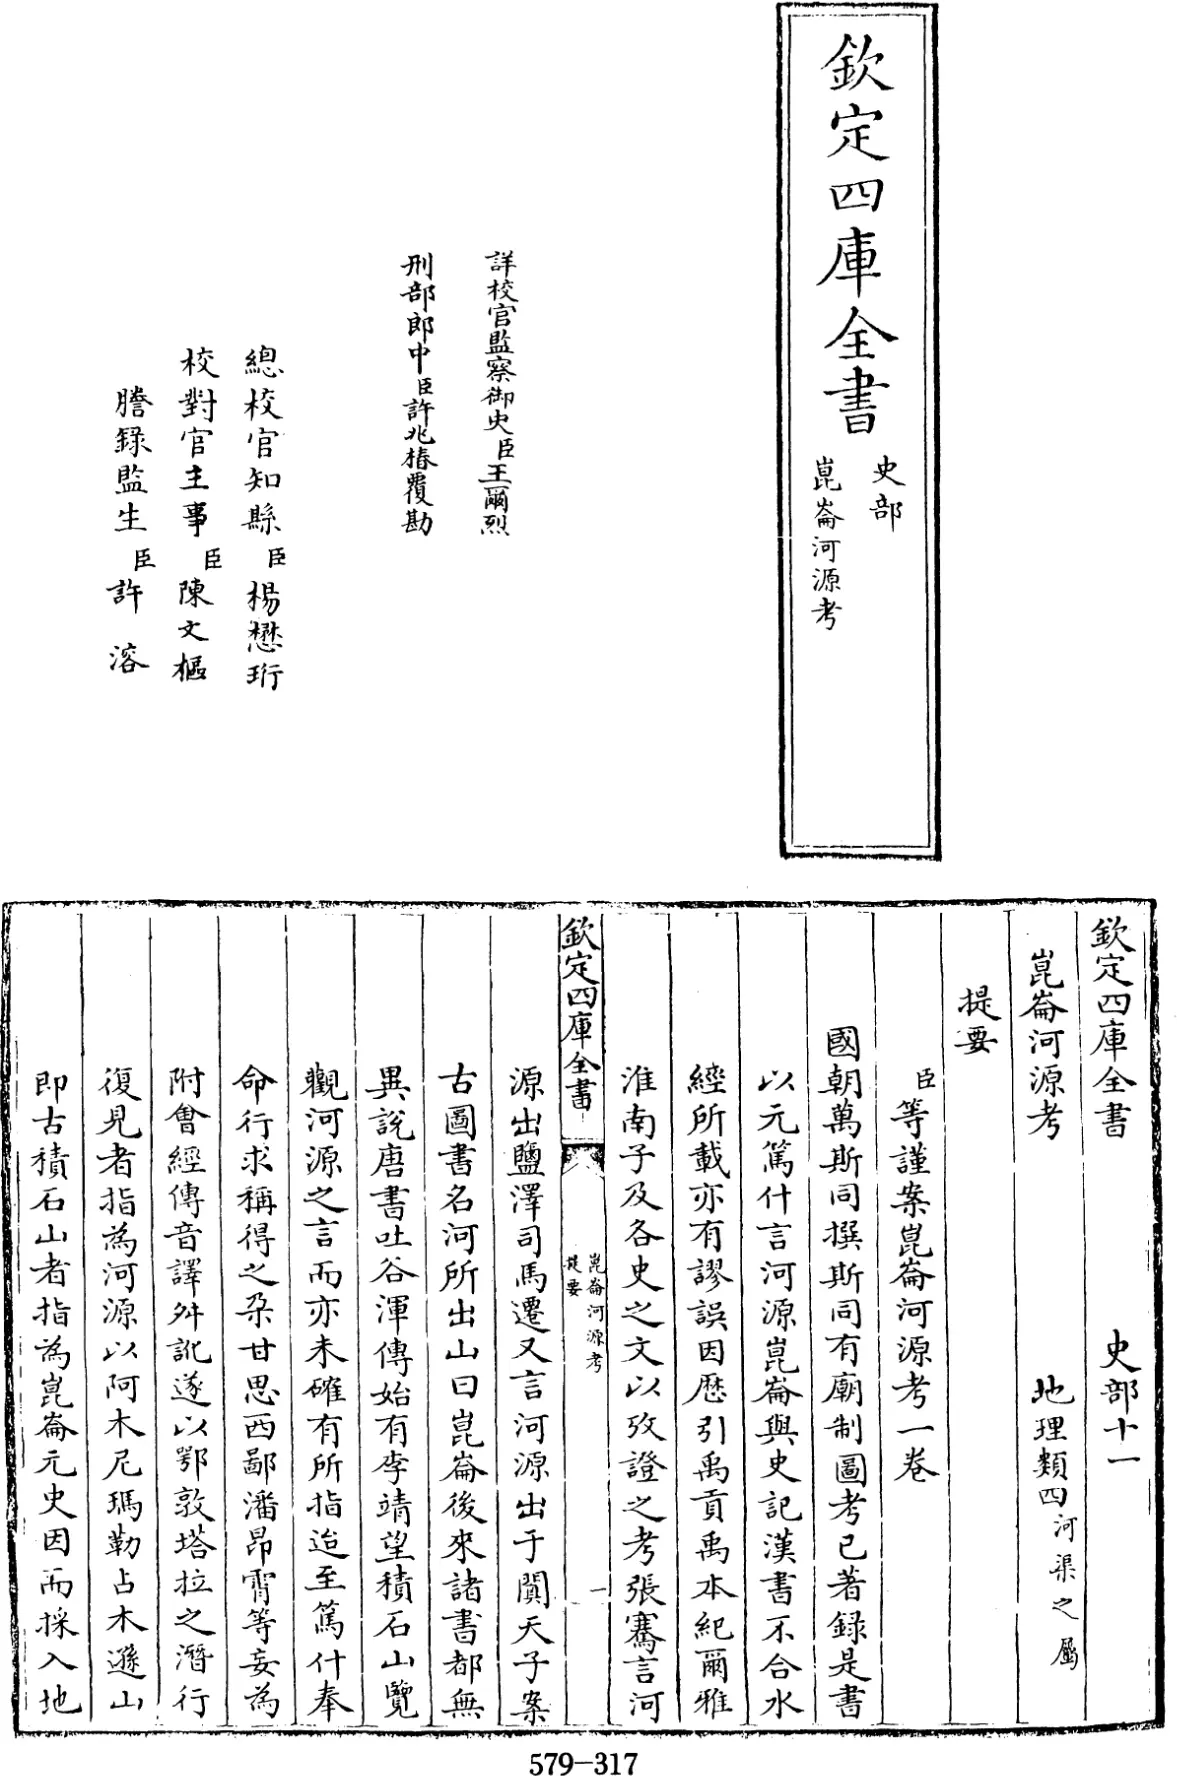 欽定四庫全書
史部
崑崙河源考
詳校官監察御史臣王爾烈
刑部郎中臣許兆椿覆勘
總校官知縣臣楊懋珩
校對官主事臣陳文樞
謄錄監生臣許溶
欽定四庫全書 史部十一
崑崙河源考 地理類四河渠之屬
提要
臣等謹案崑崙河源考一卷
國朝萬斯同撰斯同有廟制圖考已著錄是書
以元篤什言河源崑崙與史記漢書不合水
經所載亦有謬誤因歷引禹貢禹本紀爾雅
淮南子及各史之文以攷證之考張騫言河
欽定四庫全書
崑崙河源考
提要
一
源出鹽澤司馬遷又言河源出于闐天子案
古圖書名河所出山曰崑崙後來諸書都無
異說唐書吐谷渾傳始有李靖望積石山覽
觀河源之言而亦未確有所指迨至篤什奉
命行求稱得之朶甘思西鄙潘昂霄等妄為
附會經傳音譯舛訛遂以鄂敦塔拉之潛行
復見者指為河源以阿木尼瑪勒占木遜山
即古積石山者指為崑崙元史因而採入地
579-317